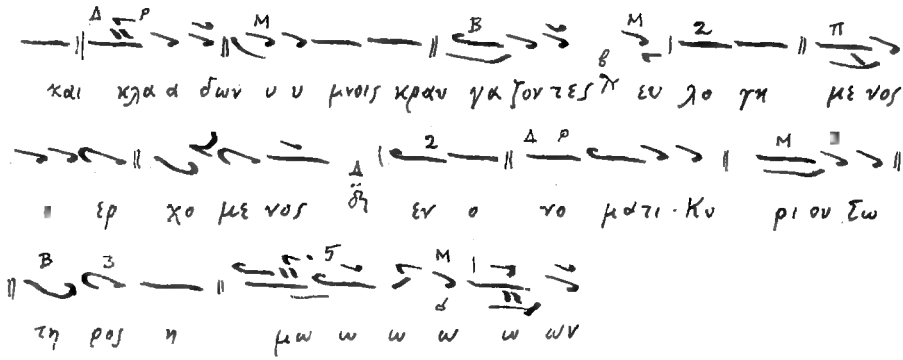 και κλαα α δων υ υ μνοις κραυ γα ζον τες ευ λο γη με νος
ερ χο με νος εν ο νο μα τι · Κυ ρι ου Σω
τη ρος η μω ω ω ω ω ων